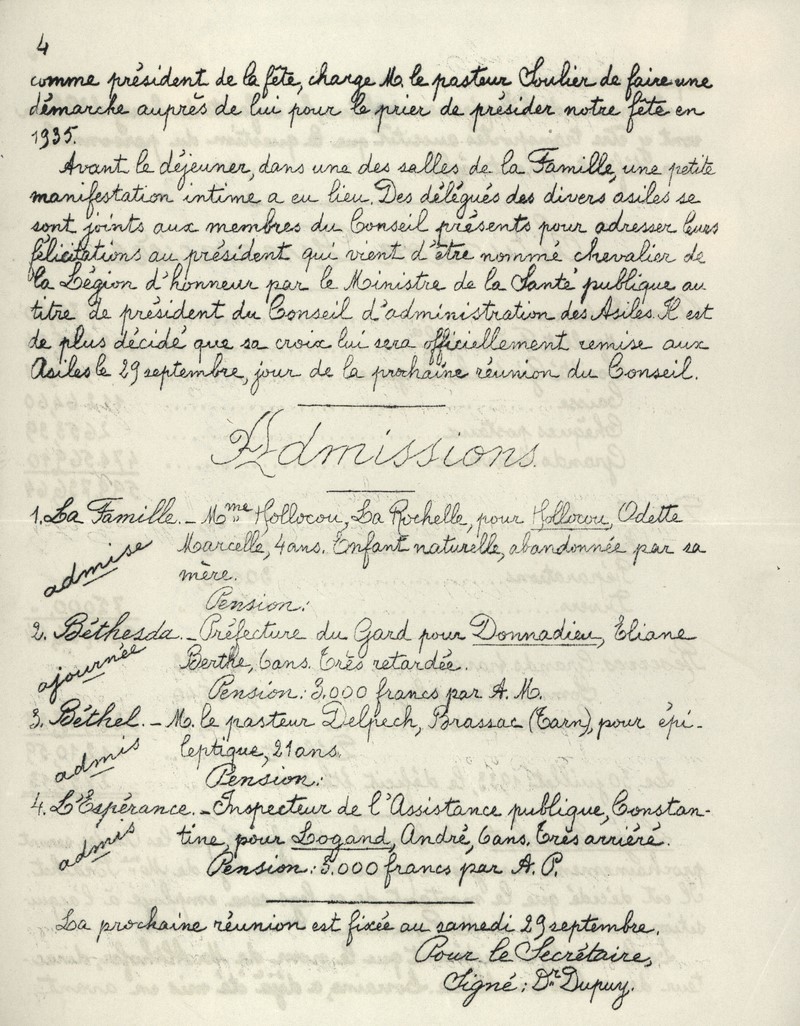 4
comme président de la fête, charge M. le pasteur Soulier de faire une
démarche auprès de lui pour le prier de présider notre fête en
1935.
Avant le déjeuner, dans une des salles de la Famille, une petite
manifestation intime a eu lieu. Des délégués des divers asiles se
sont joints aux membres du Conseil présents pour adresser leurs
félicitations au président qui vient d'être nommé chevalier de
la Légion d'honneur par le Ministre de la Santé publique au
titre de président du Conseil d'administration des Asiles. Il est
de plus décidé que sa croix lui sera officiellement remise aux
Asiles le 29 septembre, jour de la prochaine réunion du Conseil.
Admissions.
1. La Famille. _ Mme Hollocou, La Rochelle, pour Hollocou, Odette
Marcelle, 4 ans. Enfant naturelle, abandonnée par sa
admise
mère.
Pension:
2. Béthesda. _ Préfecture du Gard pour Donnadieu, Eliane
ajournée
Berthe, 6 ans. Très retardée.
Pension: 3.000 francs par A. M.
3. Béthel. _ M. le pasteur Delpech, Brassac (Tarn), pour épi-
admis
leptique, 21 ans.
Pension:
4. L'Espérance. _ Inspecteur de l'Assistance publique, Constan-
tine, pour Logand, André, 6 ans. Très arriéré.
admis
Pension: 3.000 francs par A. P.
La prochaine réunion est fixée au samedi 29 septembre.
Pour le Secrétaire,
Signé: Dr Dupuy.